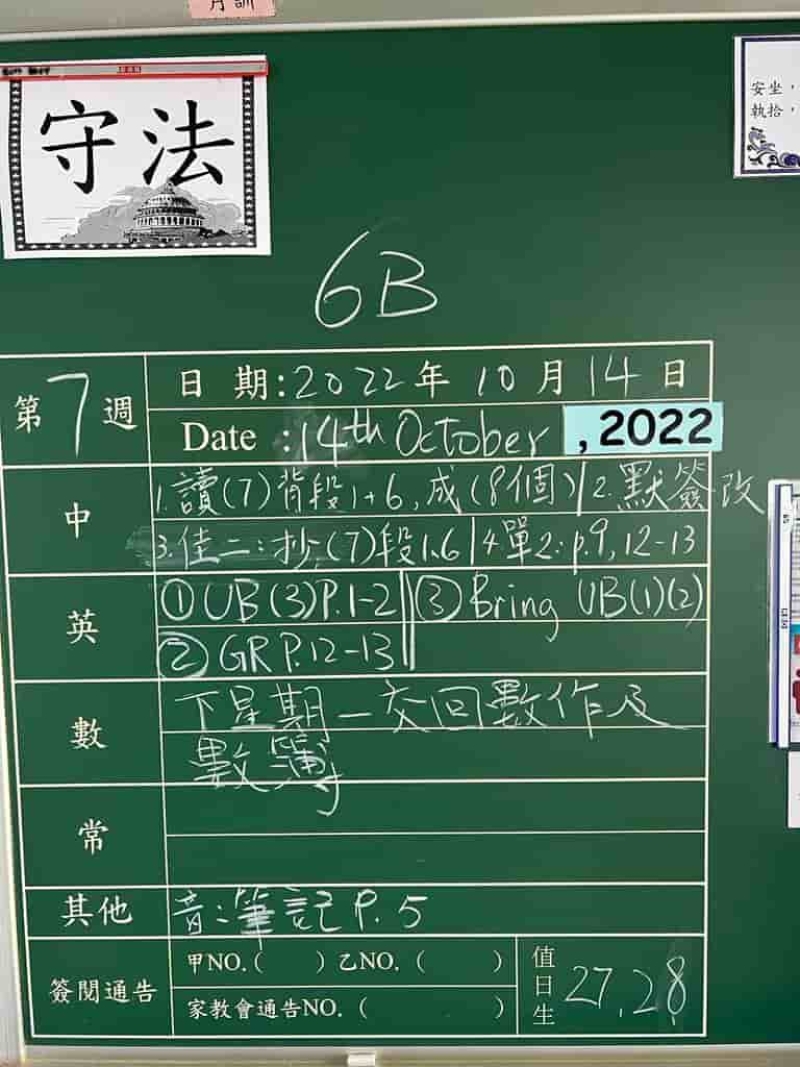 月訓
守法
安坐，
執拾，
6B
第7週
日 期:2022年 10月14日
Date :14th October ,2022
中
1.讀(7)背段1+6,成(8個) 2.默簽改
3.佳二:抄(7)段1,6 4.單2:p.9,12-13
英
①UB(3)P.1-2 ③Bring UB(1)(2)
②GR P.12-13
數
下星期一交回數作及
數簿
常
其他
音:筆記P.5
簽閱通告
甲NO.( ) 乙NO. ( )
家教會通告NO. ( )
值日生
27,28